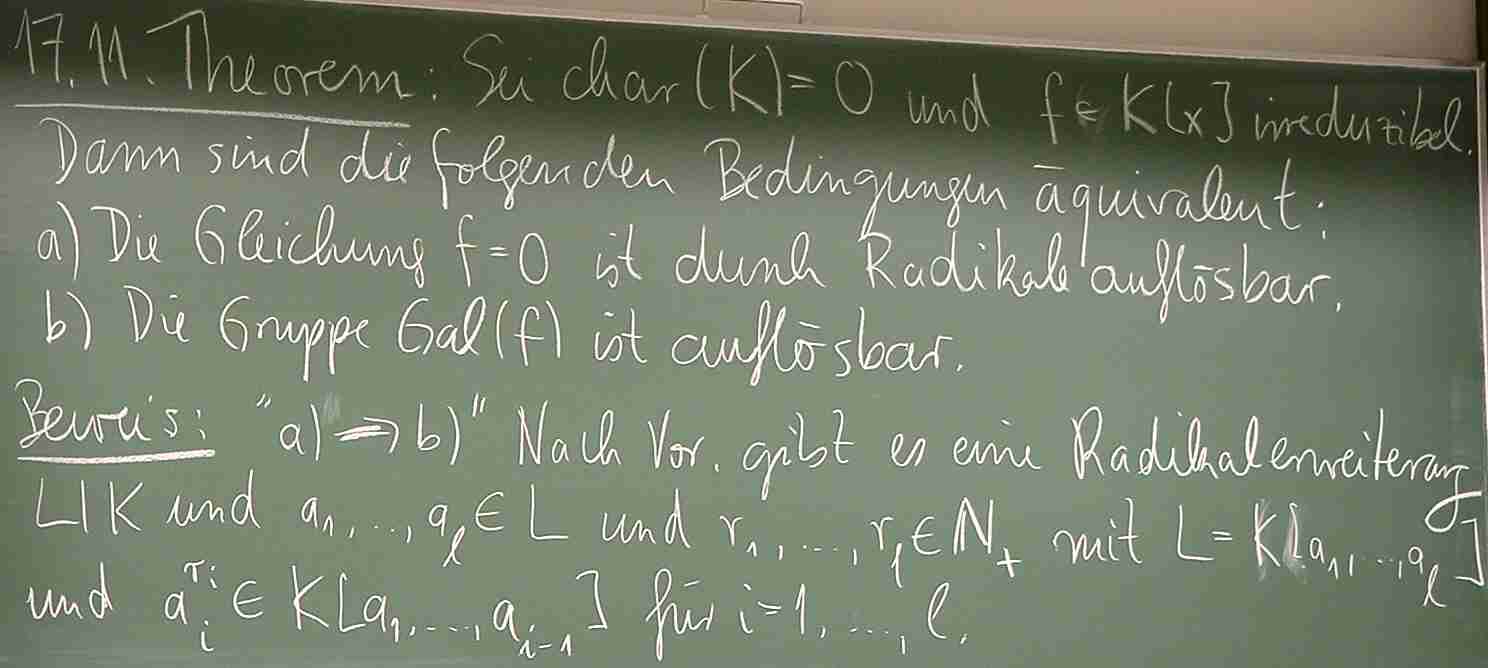 17.11. Theorem: Sei char(K)=0 und f∈K[x] irreduzibel.
Dann sind die folgenden Bedingungen äquivalent:
a) Die Gleichung f=0 ist durch Radikale auflösbar.
b) Die Gruppe Gal(f) ist auflösbar.
Beweis: "a)⇒b)" Nach Vor. gibt es eine Radikalerweiterung
L|K und a₁,..,aₗ∈L und r₁,...,rₗ∈N₊ mit L=K[a₁,..,aₗ]
und aᵢ^rᵢ∈K[a₁,...,aᵢ₋₁] für i=1,...,l.